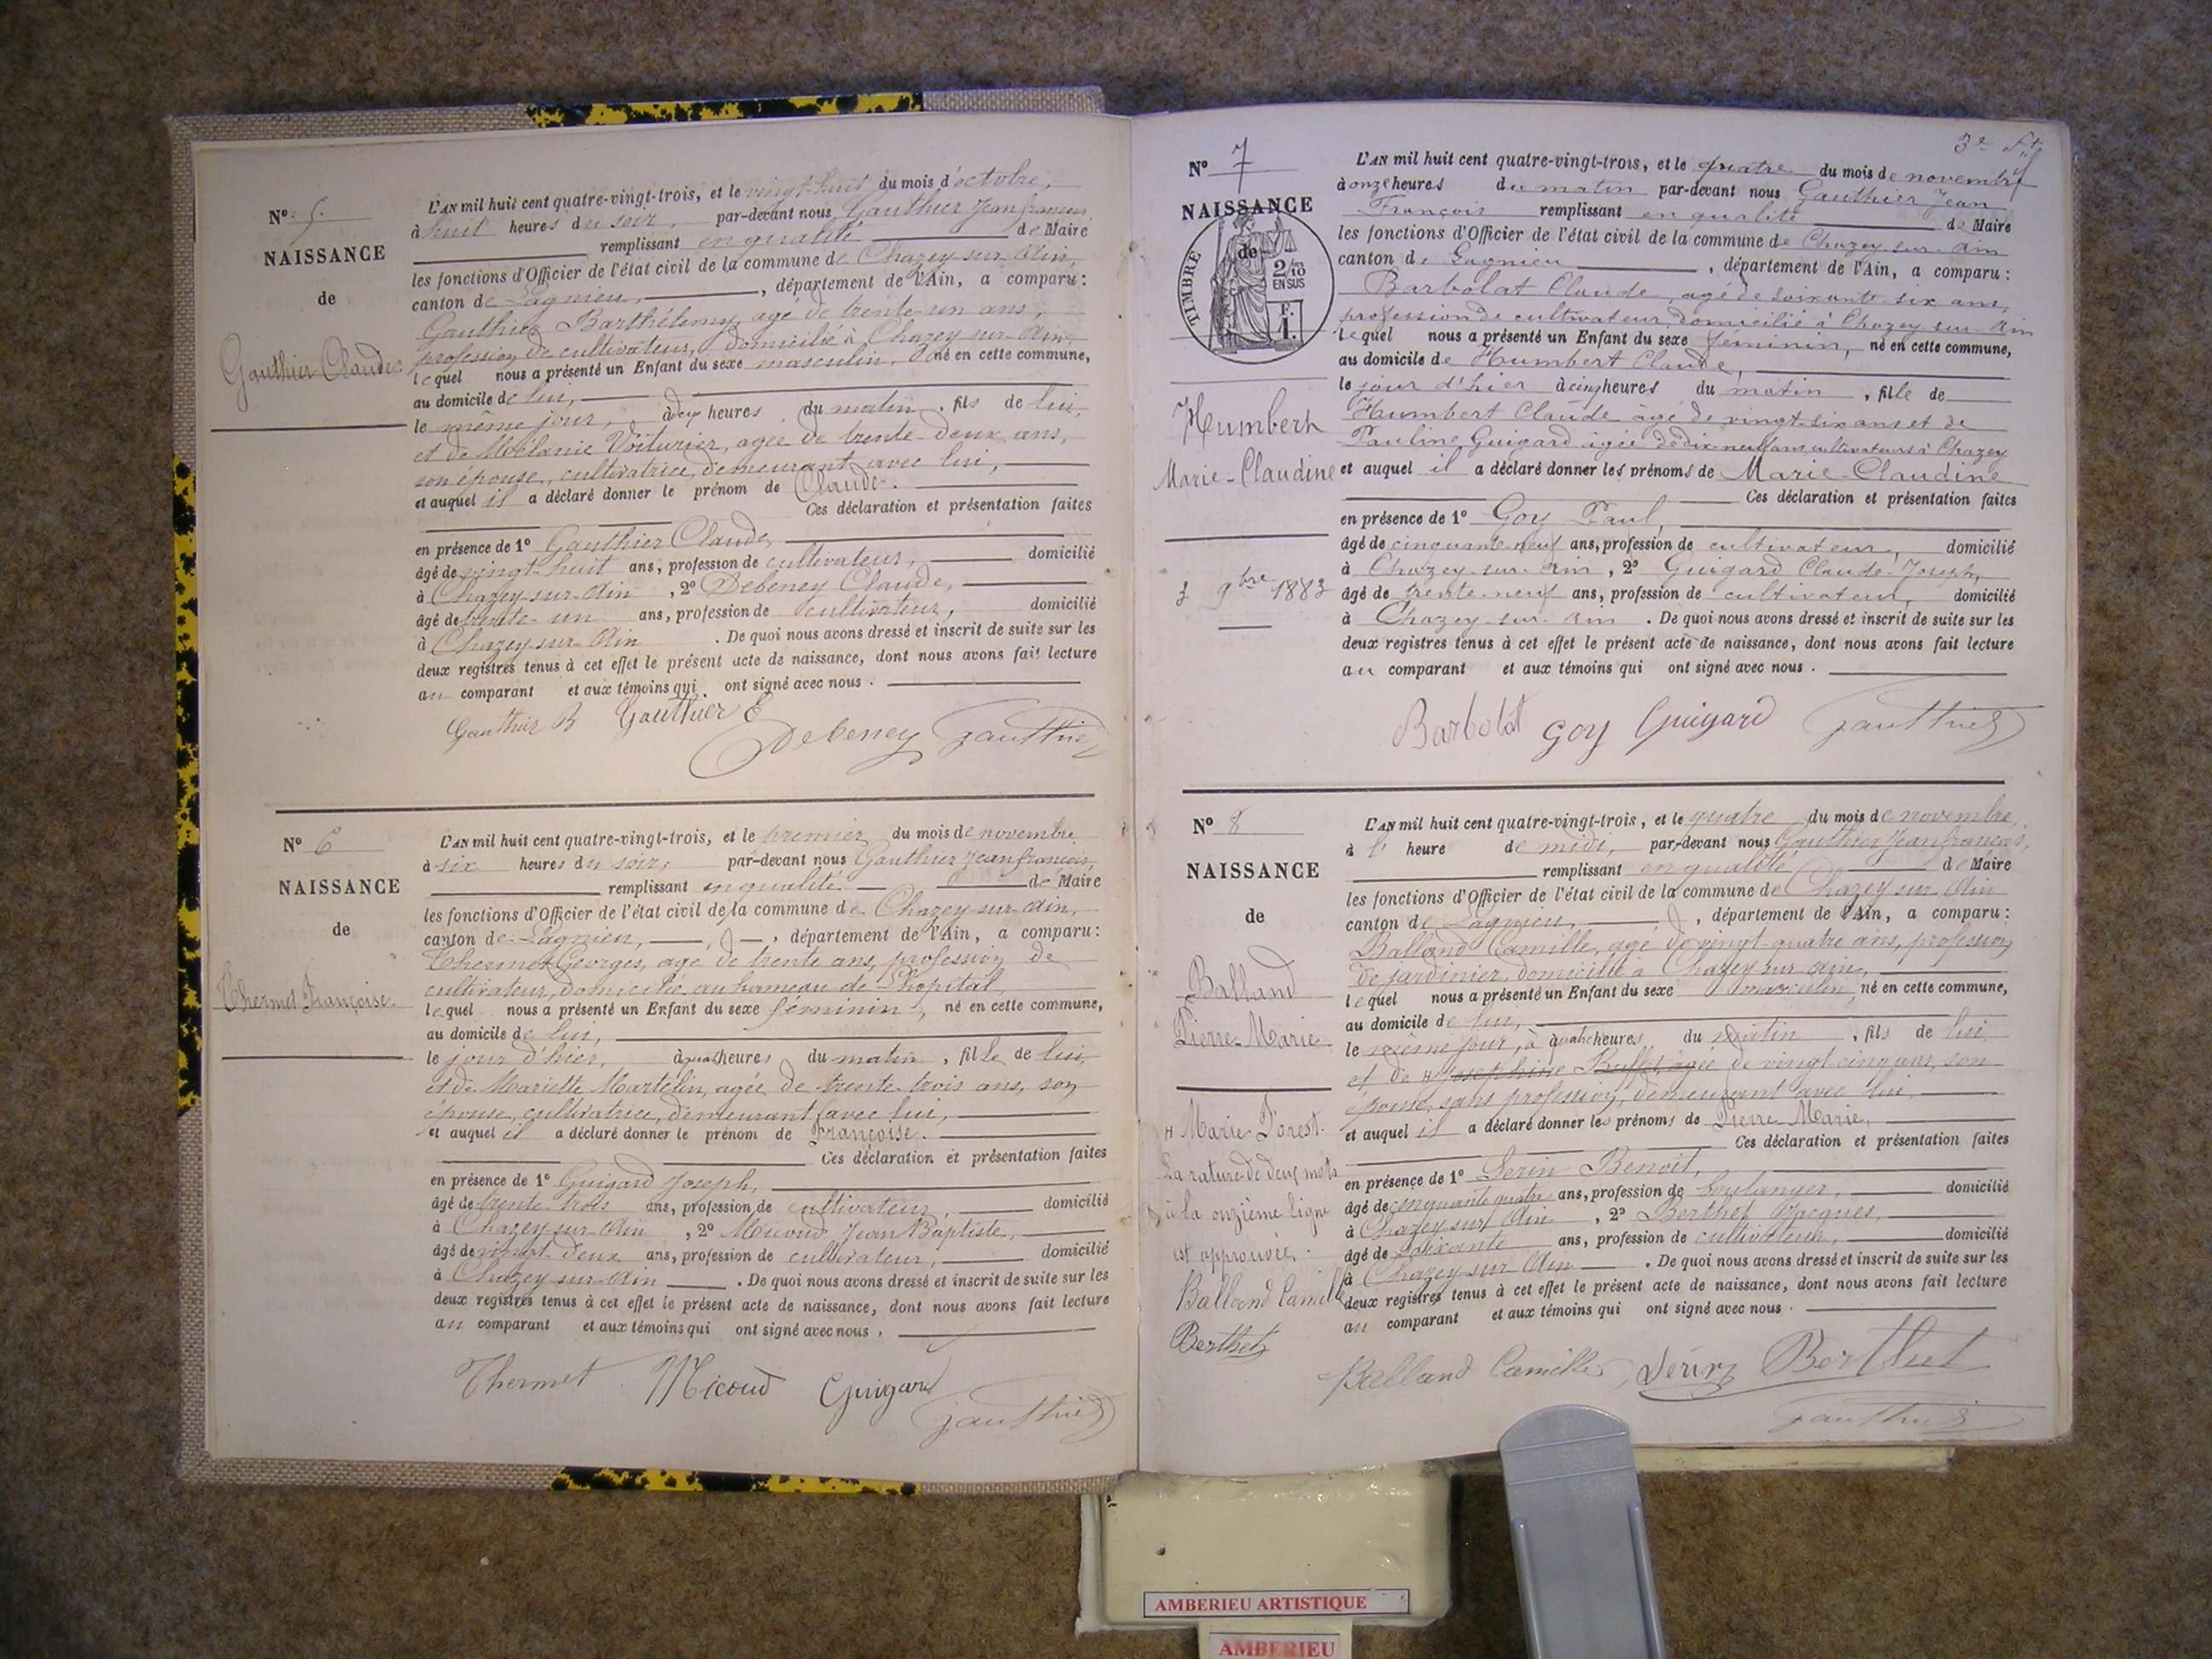 N° 5.
NAISSANCE
de
Gauthier Claude
L'AN mil huit cent quatre-vingt-trois, et le vingt-huit du mois d'octobre,
à huit heures du soir, par-devant nous Gauthier Jean françois
remplissant en qualité de Maire
les fonctions d'Officier de l'état civil de la commune de Chazey-sur-Ain,
canton de Lagnieu, , département de l'Ain, a comparu :
Gauthier Barthélemy, âgé de trente-un ans,
profession de cultivateur, domicilié à Chazey-sur-Ain,
lequel nous a présenté un Enfant du sexe masculin, né en cette commune,
au domicile de lui,
le même jour, à deux heures du matin, fils de lui,
et de Mélanie Voiturier, agée de trente-deux ans,
son épouse, cultivatrice, demeurant avec lui,
et auquel il a déclaré donner le prénom de Claude.
Ces déclaration et présentation faites
en présence de 1° Gauthier Claude,
âgé de vingt-huit ans, profession de cultivateur, domicilié
à Chazey-sur-Ain , 2° Debeney Claude,
âgé de trente-un ans, profession de cultivateur, domicilié
à Chazey-sur-Ain . De quoi nous avons dressé et inscrit de suite sur les
deux registres tenus à cet effet le présent acte de naissance, dont nous avons fait lecture
au comparant et aux témoins qui ont signé avec nous.
Gauthier B Gauthier C
Debeney Gauthier
N° 6
NAISSANCE
de
Thermet Françoise.
L'AN mil huit cent quatre-vingt-trois, et le premier du mois de novembre
à six heures du soir, par-devant nous Gauthier Jean françois,
remplissant en qualité de Maire
les fonctions d'Officier de l'état civil de la commune de Chazey-sur-Ain,
canton de Lagnieu, , département de l'Ain, a comparu :
Thermet Georges, agé de trente ans, profession de
cultivateur, domicilié au hameau de Lhopital,
lequel nous a présenté un Enfant du sexe féminin, né en cette commune,
au domicile de lui,
le jour d'hier, à heures du matin, fille de lui,
et de Mariette Martelin, agée de trente-trois ans, son
épouse, cultivatrice, demeurant avec lui,
et auquel il a déclaré donner le prénom de Françoise.
Ces déclaration et présentation faites
en présence de 1° Guigard Joseph,
âgé de trente-trois ans, profession de cultivateur, domicilié
à Chazey-sur-Ain , 2° Micoud Jean Baptiste,
âgé de vingt-deux ans, profession de cultivateur, domicilié
à Chazey-sur-Ain . De quoi nous avons dressé et inscrit de suite sur les
deux registres tenus à cet effet le présent acte de naissance, dont nous avons fait lecture
au comparant et aux témoins qui ont signé avec nous.
Thermet Micoud Guigard
Gauthier
3e
N° 7
NAISSANCE
de
TIMBRE
2/10
EN SUS
F.
1.
Humbert
Marie-Claudine
3 9bre 1883
L'AN mil huit cent quatre-vingt-trois, et le quatre du mois de novembre
à onze heures du matin par-devant nous Gauthier Jean
François remplissant en qualité de Maire
les fonctions d'Officier de l'état civil de la commune de Chazey-sur-Ain
canton de Lagnieu , département de l'Ain, a comparu :
Barbolat Claude, agé de soixante-six ans,
profession de cultivateur, domicilié à Chazey-sur-Ain
lequel nous a présenté un Enfant du sexe féminin, né en cette commune,
au domicile de Humbert Claude,
le jour d'hier à cinq heures du matin, fille de
Humbert Claude âgé de vingt-six ans et de
Pauline Guigard agée de dix-neuf ans cultivateurs à Chazey
et auquel il a déclaré donner les prénoms de Marie-Claudine
Ces déclaration et présentation faites
en présence de 1° Goy Paul,
âgé de cinquante-neuf ans, profession de cultivateur, domicilié
à Chazey-sur-Ain , 2° Guigard Claude-Joseph,
âgé de trente-neuf ans, profession de cultivateur, domicilié
à Chazey-sur-Ain . De quoi nous avons dressé et inscrit de suite sur les
deux registres tenus à cet effet le présent acte de naissance, dont nous avons fait lecture
au comparant et aux témoins qui ont signé avec nous.
Barbolat Goy Guigard Gauthier
N° 8
NAISSANCE
de
Balland
Pierre-Marie
L'AN mil huit cent quatre-vingt-trois, et le quatre du mois de novembre,
à l' heure de midi, par-devant nous Gauthier Jean françois,
remplissant en qualité de Maire
les fonctions d'Officier de l'état civil de la commune de Chazey sur Ain
canton de Lagnieu, , département de l'Ain, a comparu :
Balland Camille, agé de vingt-quatre ans, profession
de jardinier, domicilié à Chazey sur Ain,
lequel nous a présenté un Enfant du sexe masculin, né en cette commune,
au domicile de lui,
le même jour, à quatre heures du matin, fils de lui
et de Joséphine Buffet, agée de vingt cinq ans, son
épouse, sans profession, demeurant avec lui,
et auquel il a déclaré donner les prénoms de Pierre Marie,
Ces déclaration et présentation faites
en présence de 1° Serin Benoit,
âgé de cinquante quatre ans, profession de boulanger, domicilié
à Chazey sur Ain , 2° Berthet Jacques,
âgé de soixante ans, profession de cultivateur, domicilié
à Chazey sur Ain . De quoi nous avons dressé et inscrit de suite sur les
deux registres tenus à cet effet le présent acte de naissance, dont nous avons fait lecture
au comparant et aux témoins qui ont signé avec nous.
Marie Forest.
La rature de deux mots
à la onzième ligne
est approuvée.
Balland Camille
Berthet
Balland Camille Serin Berthet
Gauthier
AMBERIEU ARTISTIQUE
AMBERIEU